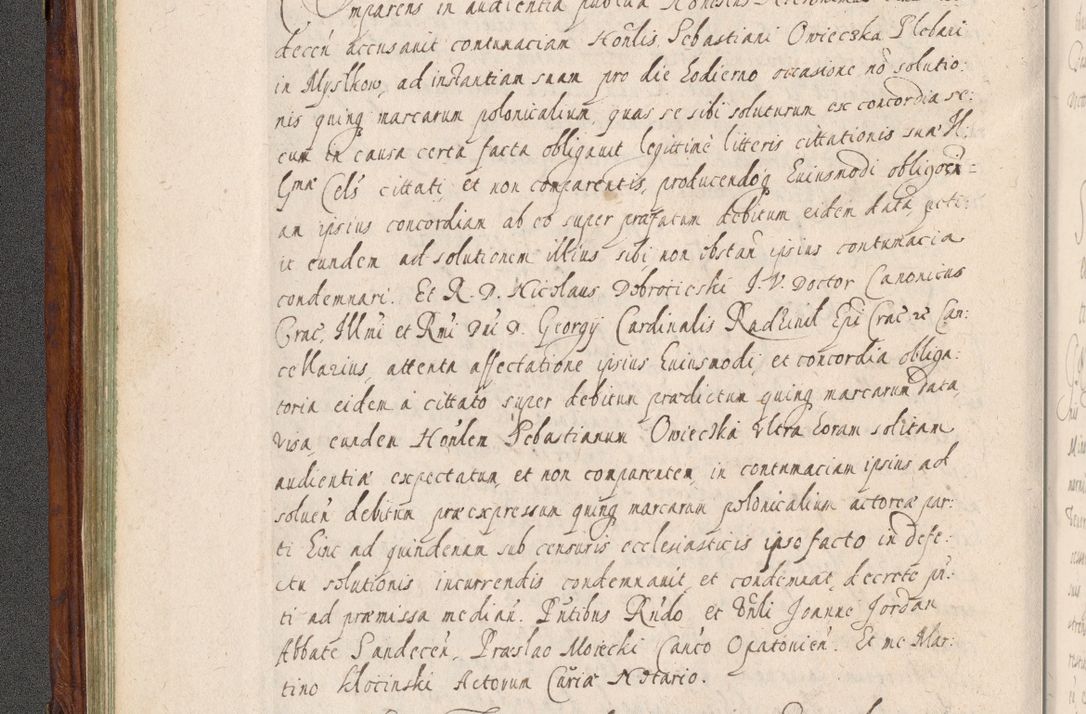 Comparens in audientia publica Honestus Hieronimus
decen̄ accusauit contumaciam Hon̄lis Sebastiani Owieczka Plebani
in Myslkow, ad instantiam suam pro die hodierno occasione nō solutio:
nis quinq marcarum polonicalium, quas se sibi soluturum ex concordia se:
cum in causa certa facta obligauit legittimè litteris cittationis suæ Il:
lmæ Cels̄ cittati, et non comparentis, producendoq huiusmodi obligōem
an ipsius concordiam ab eo super præfatum debitum eidem datā peti:
it eundem ad solutionem illius sibi non obstan̄ ipsius contumacia
condemnari. Et R. D. Nicolaus Dobrocieski J. V. Doctor Canonicus
Crac̄, Illmi et Rmi Dn̄i D. Georgij Cardinalis Radziuil Ep̄i Crac̄ Can:
cellarius, attenta affectatione ipsius huiusmodi, et concordia obliga:
toria eidem à cittato super debitum prædictum quinq marcarum data,
visa, eundem Hon̄lem Sebastianum Owieczka vltra horam solitam
audientiæ expectatum, et non comparentem, in contumaciam ipsius ad
soluen̄ debitum præexpressum quinq marcarum polonicalium actoreæ par:
ti hinc ad quindenam sub censuris ecclesiasticis ipso facto in defe:
ctu solutionis incurrendis condemnauit, et condemnat, decreto pn̄:
ti ad præmissa median̄. Pn̄tibus Rn̄do et Vn̄li Joanne Jordan
Abbate Sandecen̄, Praslao Morecki Can̄co Opatouien̄. Et me Mar:
tino Klocinski Actorum Curiæ Notario.